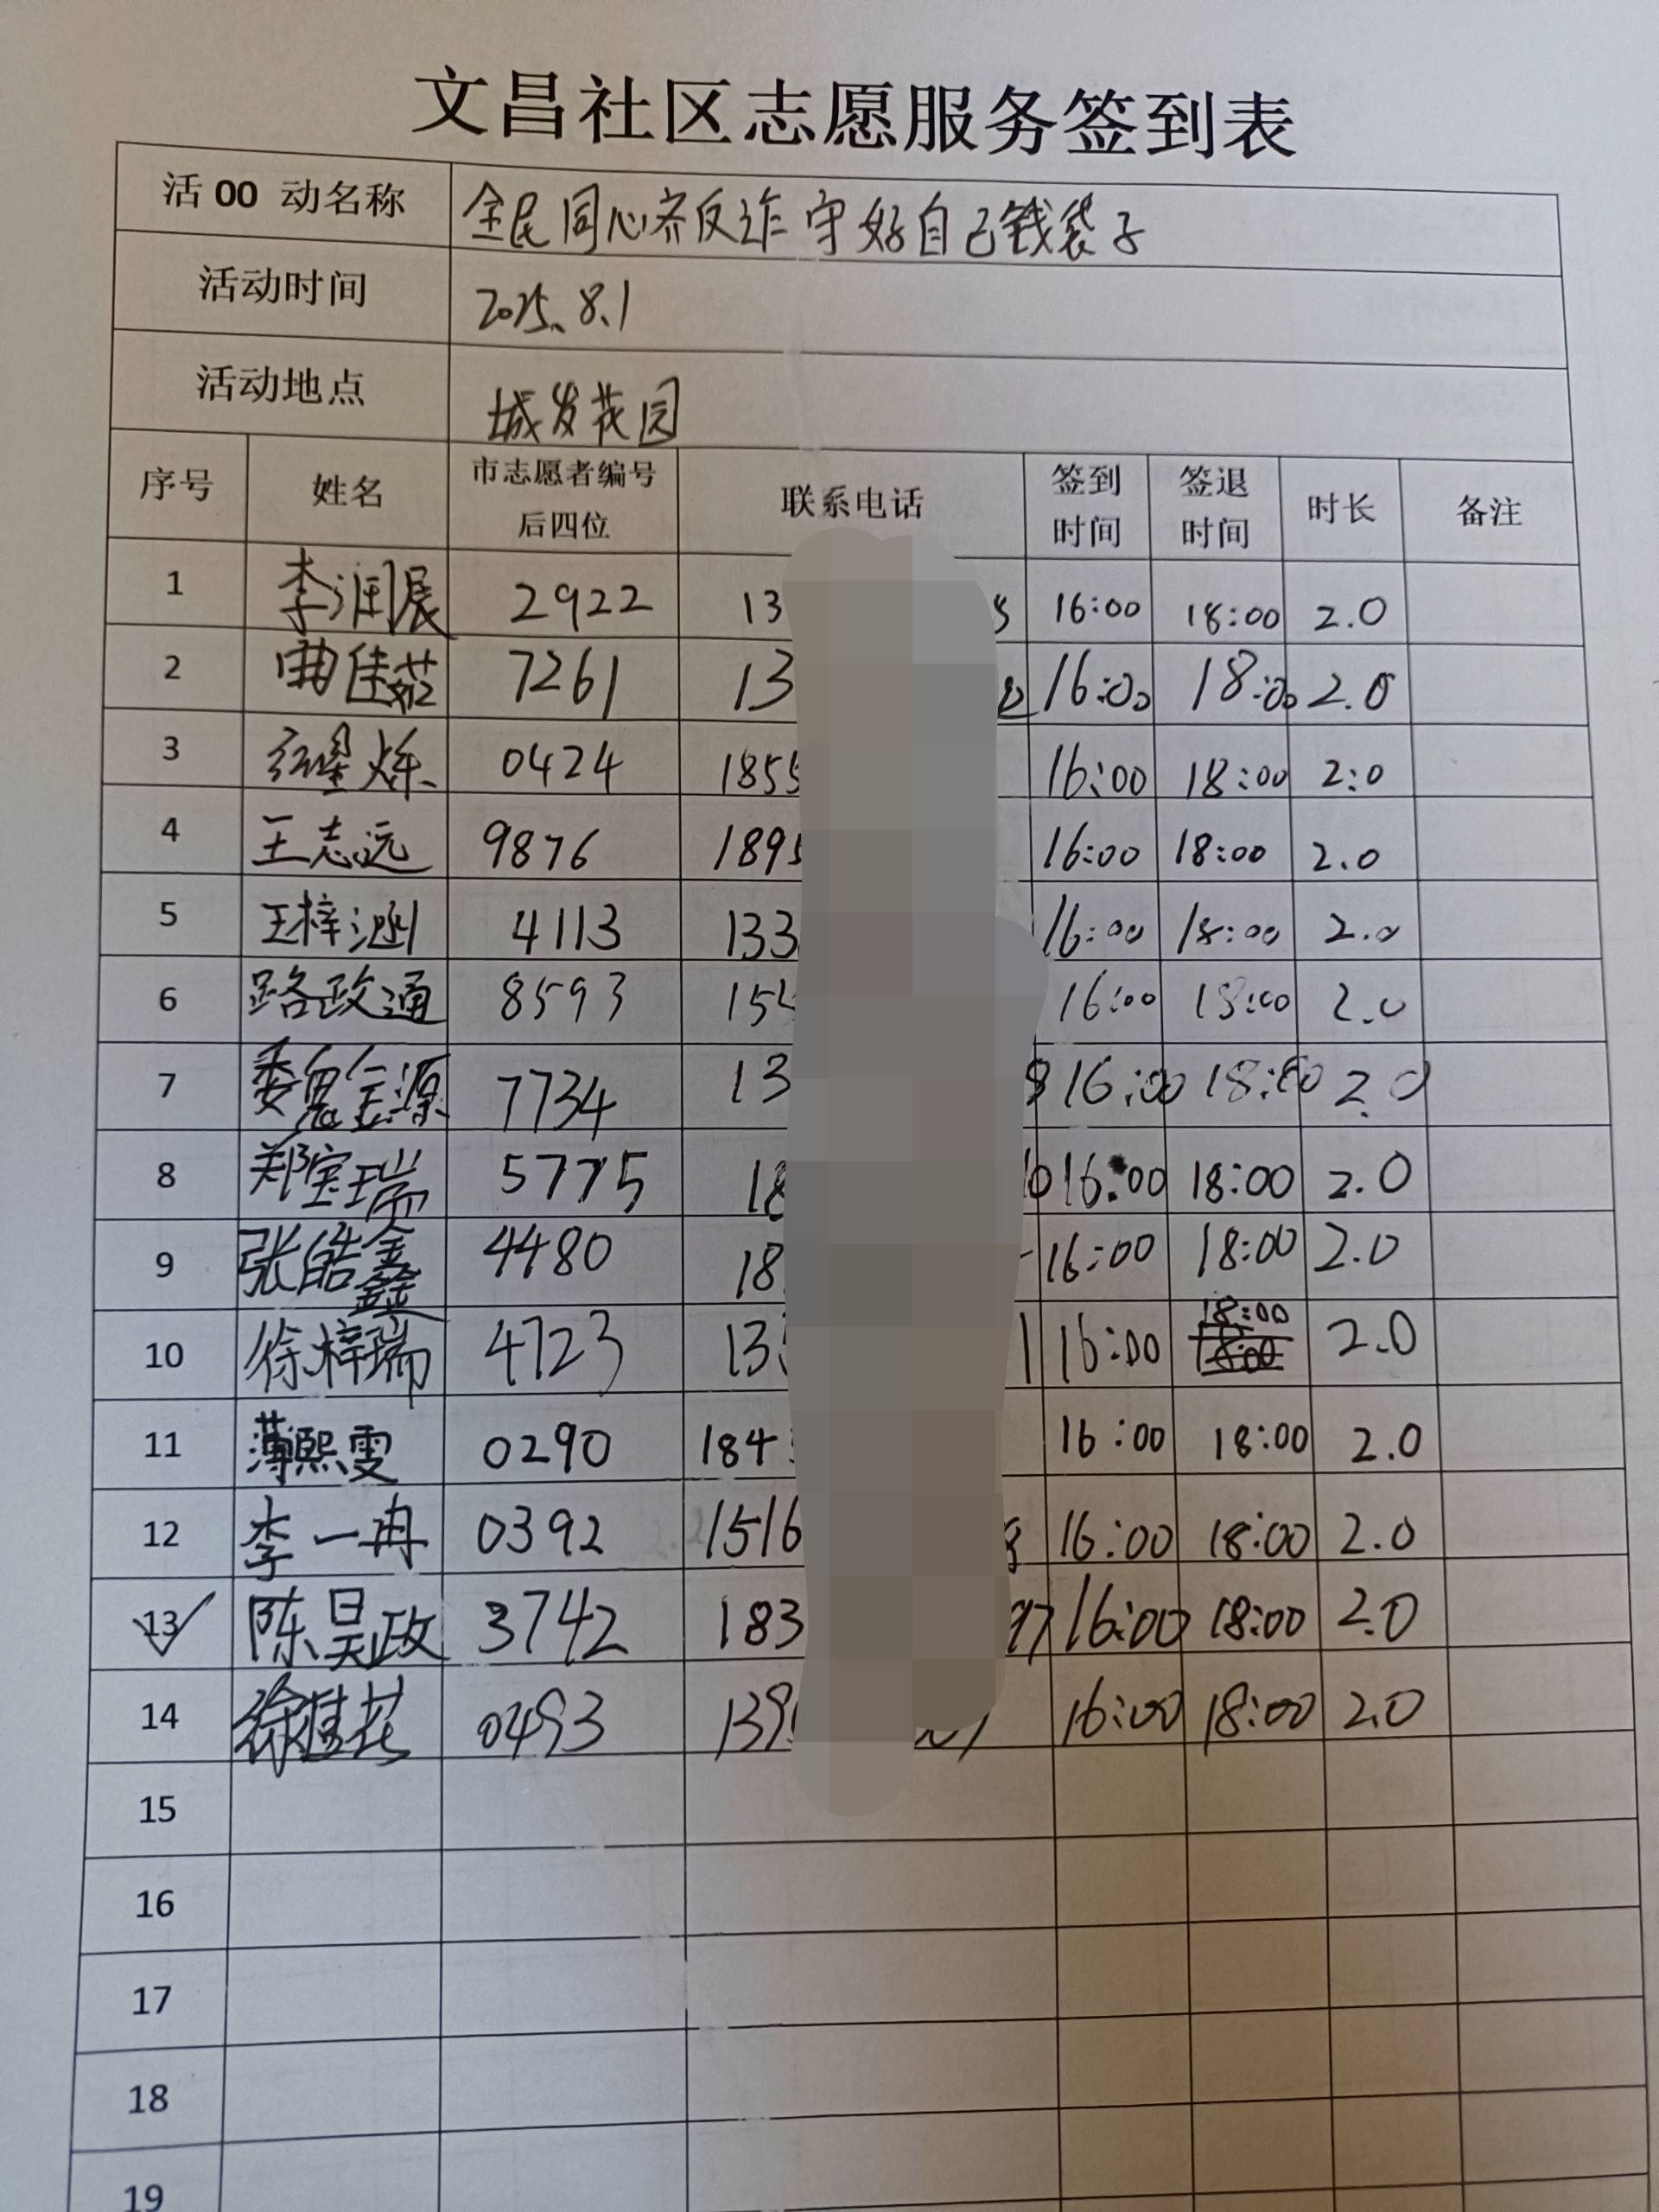 文昌社区志愿服务签到表
活 00 动名称 全民同心齐反诈 守好自己钱袋子
活动时间 2025.8.1
活动地点 城发花园
序号 姓名 市志愿者编号后四位 联系电话 签到时间 签退时间 时长 备注
1 李润晨 2922 13 16:00 18:00 2.0
2 曲佳茹 7261 13 16:00 18:00 2.0
3 0424 1855 16:00 18:00 2:0
4 王志远 9876 189 16:00 18:00 2.0
5 王梓涵 4113 133 16:00 18:00 2.0
6 路政通 8593 15 16:00 18:00 2.0
7 魏金源 7734 13 16:00 18:00 2.0
8 郑宝瑞 5775 18 16:00 18:00 2.0
9 张皓鑫 4480 18 16:00 18:00 2.0
10 徐梓瑞 4723 13 1 16:00 18:00 2.0
11 薄熙雯 0290 184 16:00 18:00 2.0
12 李一冉 0392 1516 8 16:00 18:00 2.0
13 陈昊政 3742 183 97 16:00 18:00 2.0
14 徐桂花 0493 139 16:00 18:00 2.0
15
16
17
18
19